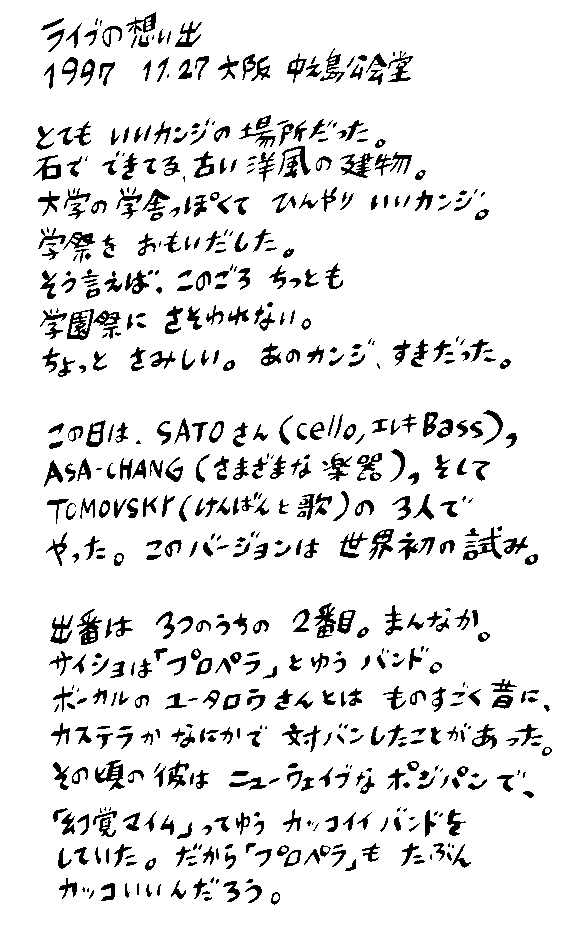 ライブの想い出
1997 11.27 大阪 中之島公会堂
とても いいカンジの 場所だった。
石で できてる、古い 洋風の 建物。
大学の 学舎っぽくて ひんやり いいカンジ。
学祭を おもいだした。
そう言えば、このごろ ちっとも
学園祭に さそわれない。
ちょっと さみしい。 あのカンジ、すきだった。
この日は、SATOさん(cello,エレキBass),
ASA-CHANG (さまざまな 楽器), そして
TOMOVSKY(けんばんと歌)の 3人で
やった。このバージョンは 世界初の試み。
出番は 3つのうちの 2番目。まんなか。
サイショは「プロペラ」とゆう バンド。
ボーカルの ユータロウさんとは ものすごく昔に、
カステラか なにかで 対バンしたことがあった。
その頃の彼は ニューウェイブな ポジパンで、
「幻覚マイム」ってゆう カッコイイ バンドを
していた。だから「プロペラ」も たぶん
カッコいいんだろう。